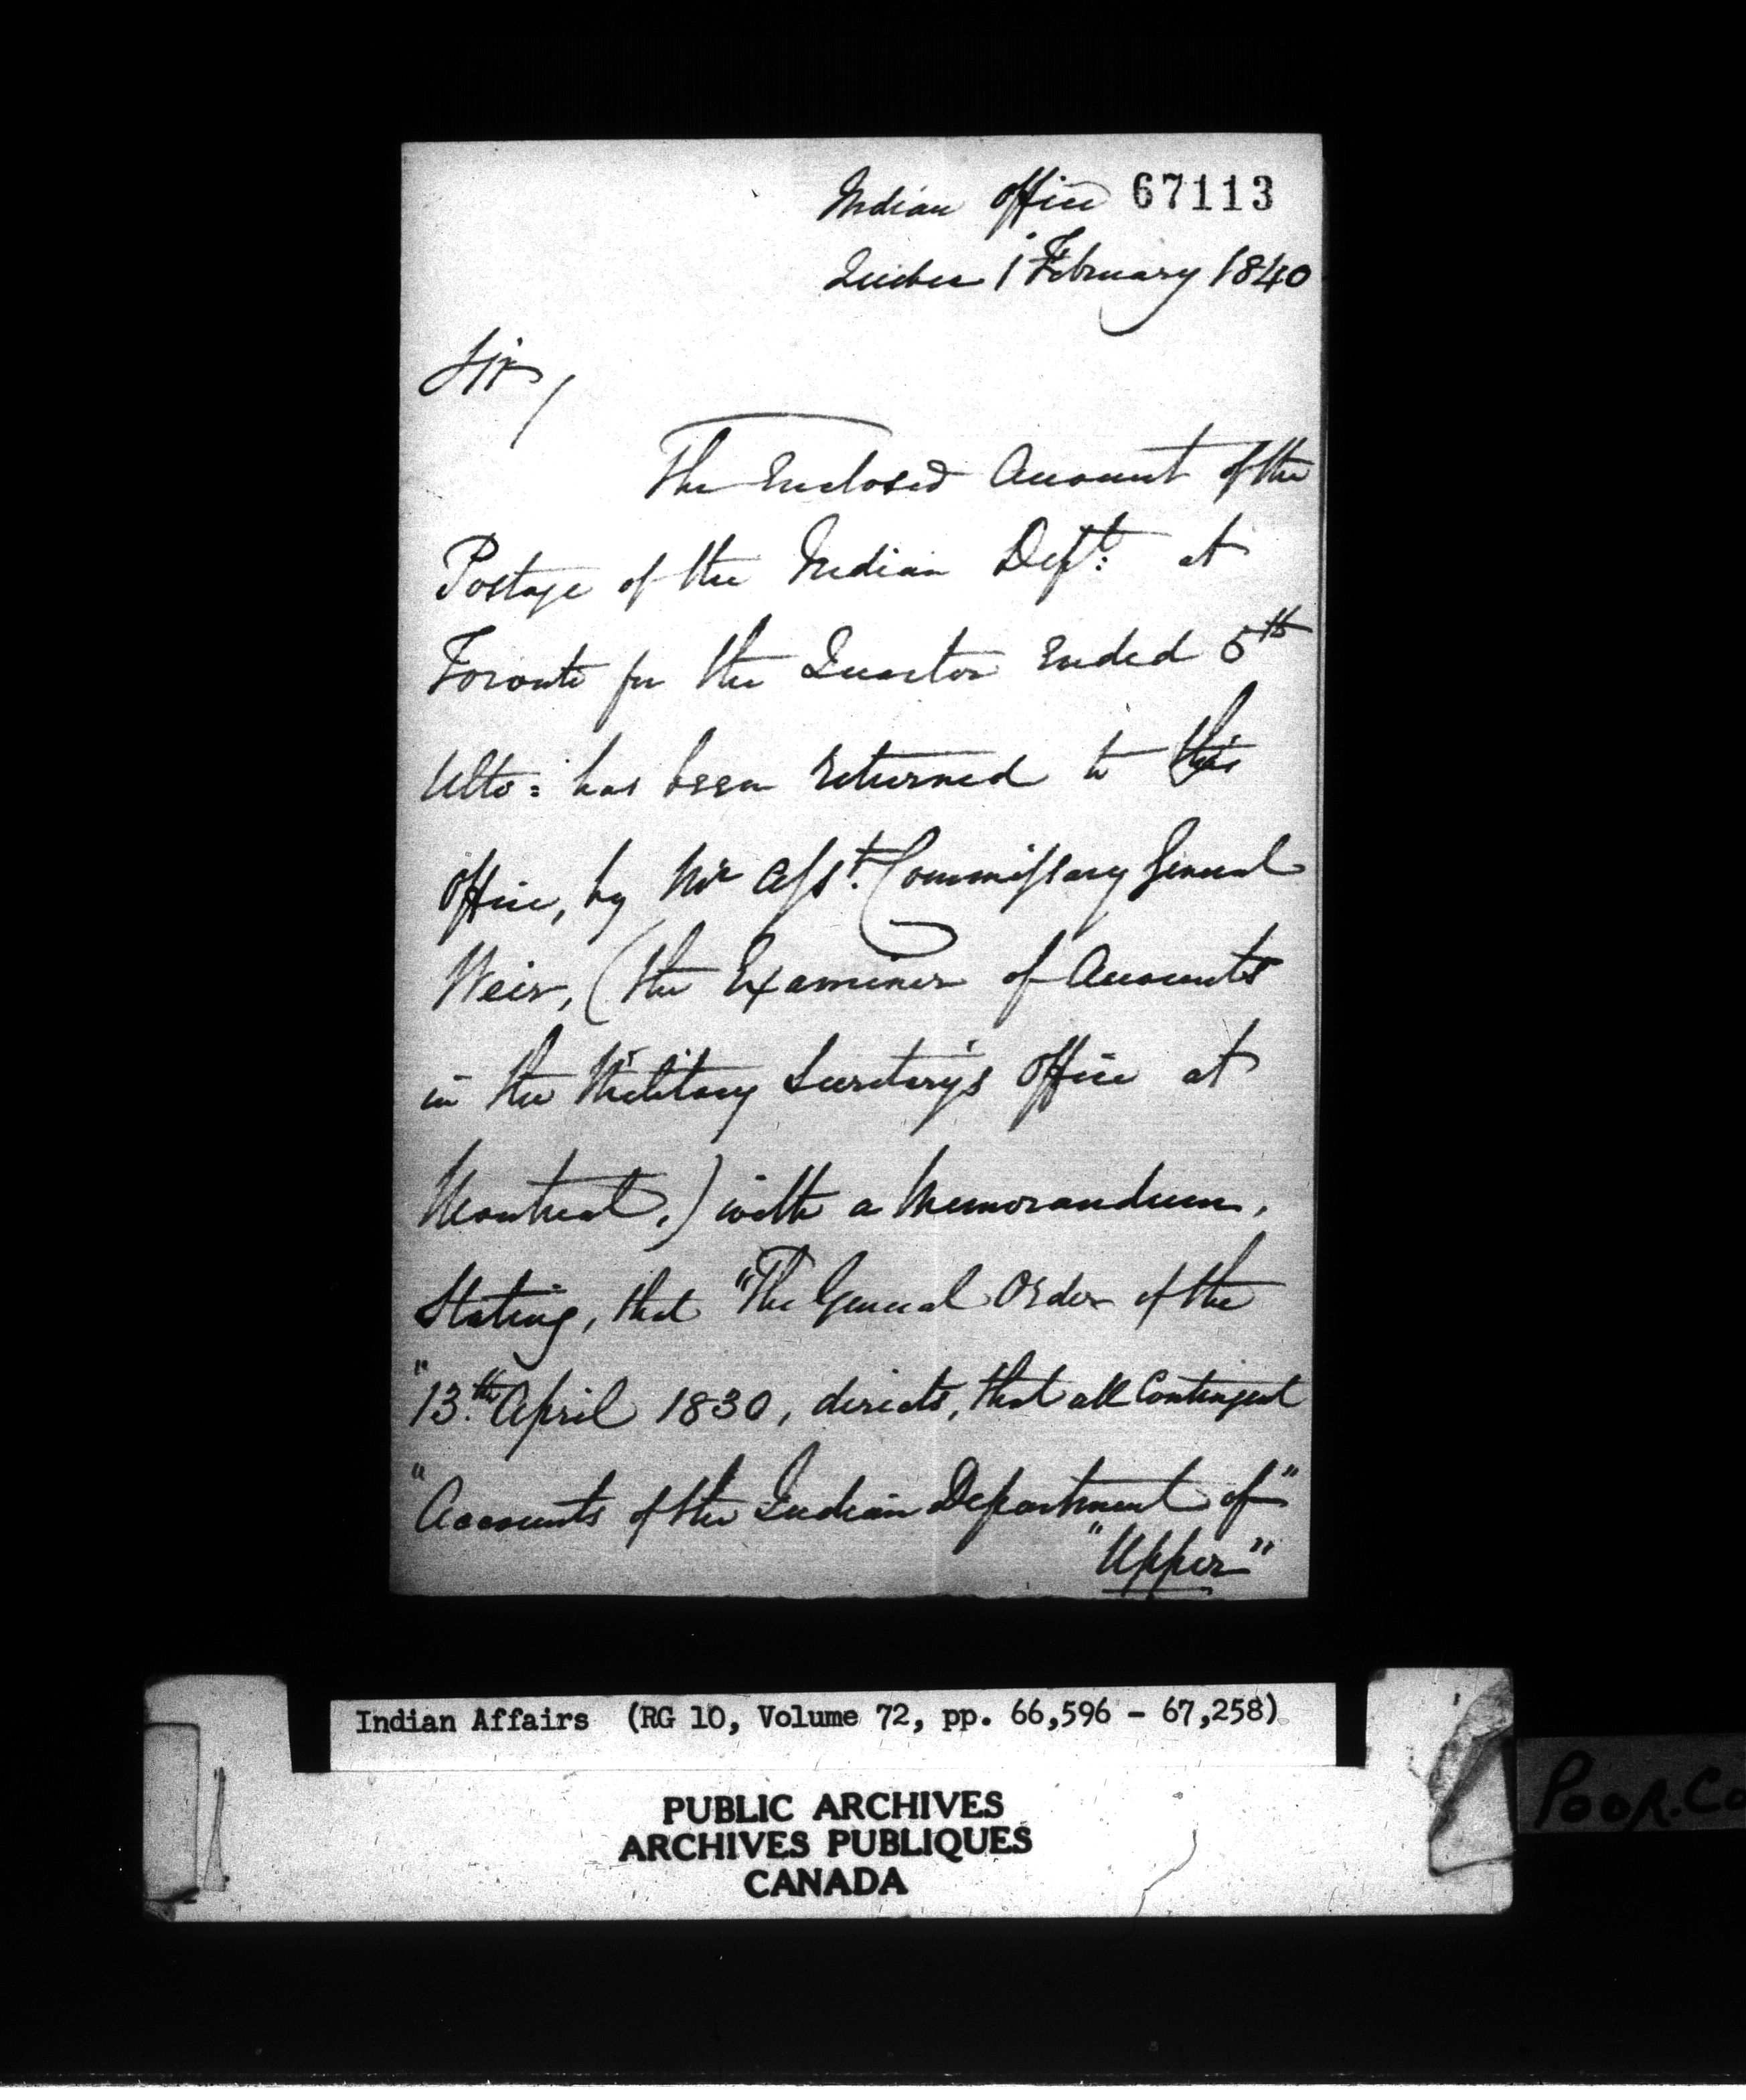 Indian Office 67113
Quebec 1 February 1840
Sir,
The Enclosed Account of the
Postage of the Indian Dept: at
Toronto for the Quarter Ended 5th
Ulto: has been returned to this
Office, by Mr Asst. Commissary General
Weir, (the Examiner of Accounts
in the Military Secretary's Office at
Montreal,) with a Memorandum,
Stating, that "The General Order of the
"13th. April 1830, directs, that all Contingent
"Accounts of the Indian Department of"
"Upper"
Indian Affairs (RG 10, Volume 72, pp. 66,596 - 67,258)
PUBLIC ARCHIVES
ARCHIVES PUBLIQUES
CANADA
POOR.Co